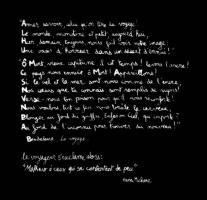 "Amer savoir, celui qu'on tire du voyage!
Le monde, monotone et petit, aujourd'hui,
Hier, demain, toujours, nous fait voir notre image:
Une oasis d'horreur dans un désert d'ennui!"
"Ô Mort, vieux capitaine, il est temps! levons l'ancre!
Ce pays nous ennuie, ô Mort! Appareillons!
Si le ciel et la mer sont noirs comme de l'encre,
Nos cœurs que tu connais sont remplis de rayons!
Verse-nous ton poison pour qu'il nous réconforte!
Nous voulons, tant ce feu nous brûle le cerveau,
Plonger au fond du gouffre, Enfer ou Ciel, qu'importe?
Au fond de l'inconnu pour trouver du nouveau!
Baudelaire. Le voyage.
Le voyageur s'exclama alors:
"Malheur à ceux qui se contentent de peu"